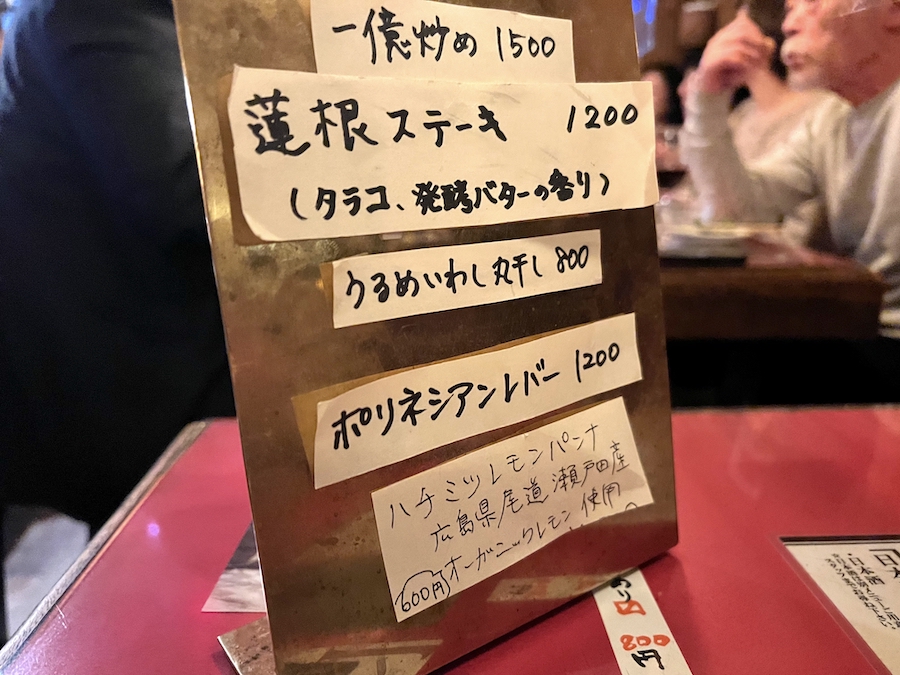 一億炒め 1500
蓮根ステーキ 1200
（タラコ、発酵バターの香り）
うるめいわし丸干し 800
ポリネシアンレバー 1200
ハチミツレモンパンナ
広島県尾道瀬戸田産
オーガニックレモン使用
600円
800円